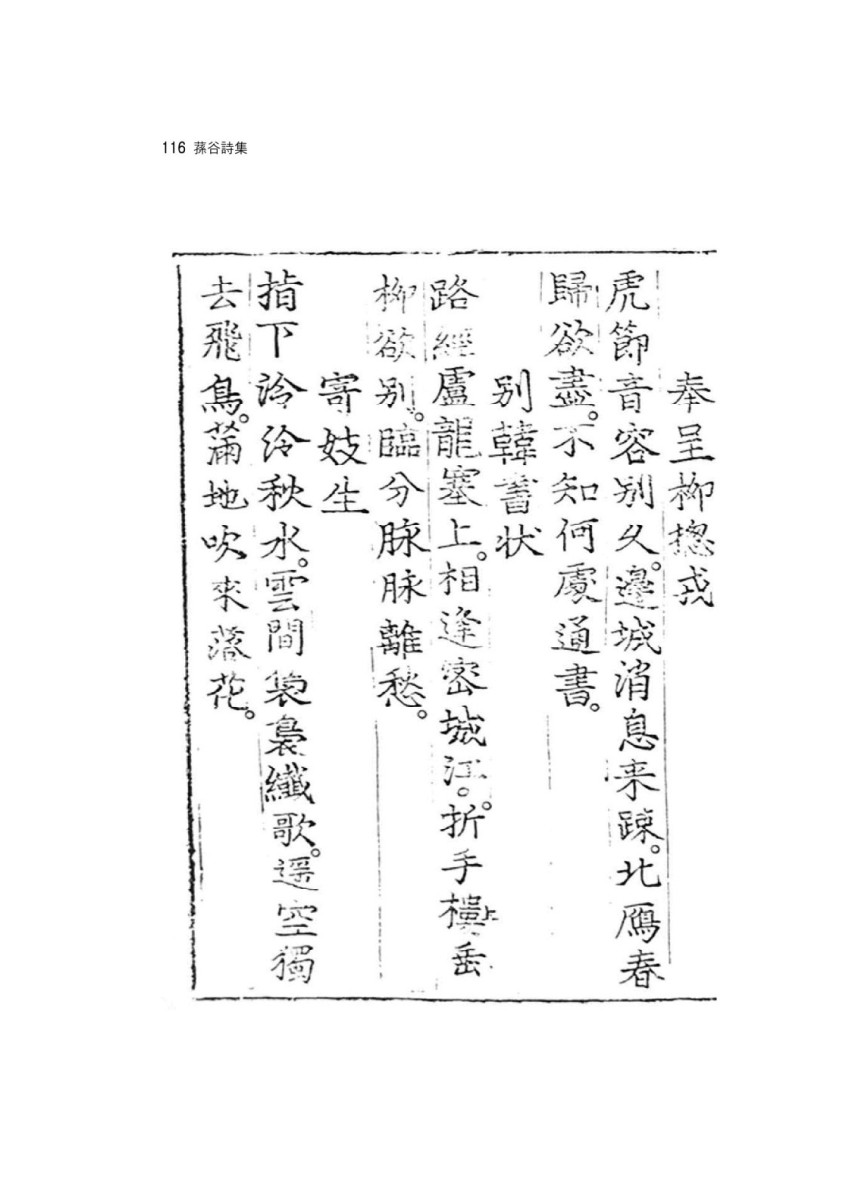 116 蓀谷詩集
奉呈柳摠戎
虎節音容別久。邊城消息来踈。北鴈春
歸欲盡。不知何處通書。
別韓書状
路經盧龍塞上。相逢密城江。折手樓上垂
柳欲別。臨分脉脉離愁。
寄妓生
指下泠泠秋水。雲間裊裊纖歌。遥空獨
去飛鳥。滿地吹來落花。